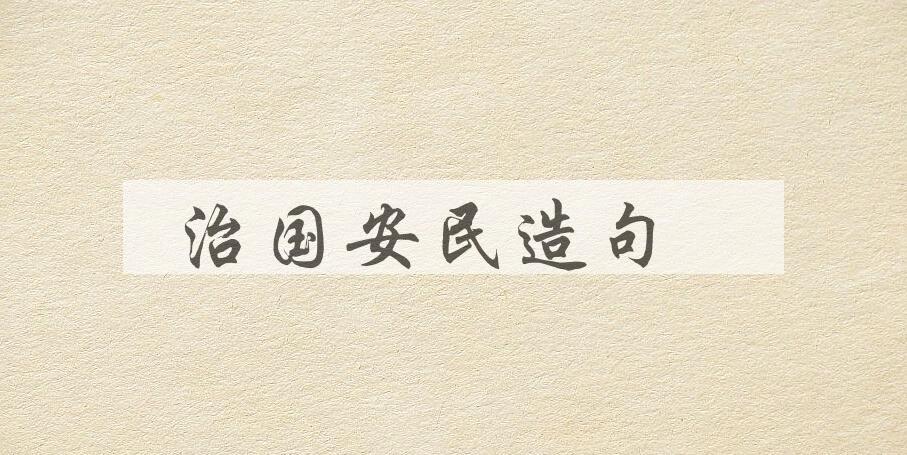 治国安民造句